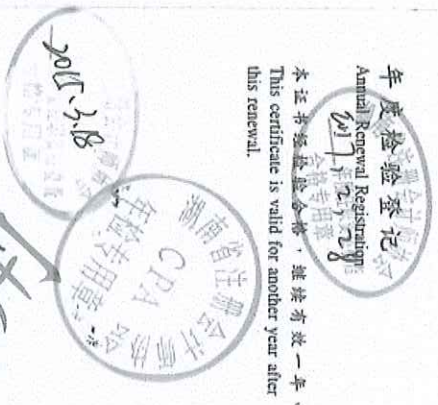 年度检验登记
Annual Renewal Registration
2017.2.28
合格专用章
本证书经检验合格，继续有效一年。
This certificate is valid for another year after
this renewal.
湖南省注册会计师协会
CPA
年检专用章
2015.3.18